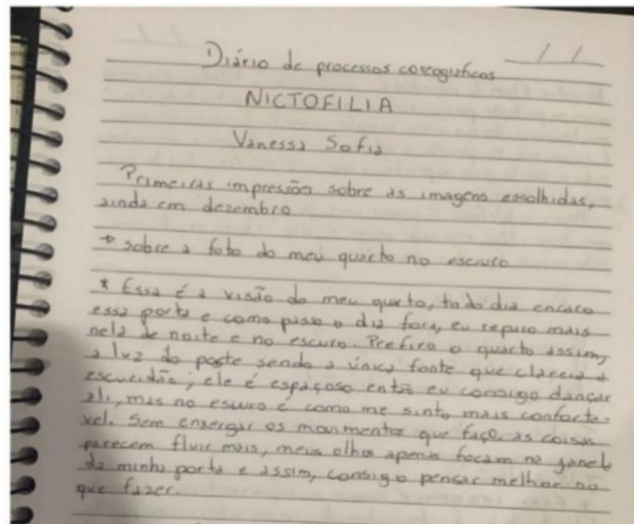 / /
Diário de processos coreográficos
NICTOFILIA
Vanessa Sofia
Primeiras impressões sobre as imagens escolhidas,
ainda em dezembro
→ sobre a foto do meu quarto no escuro
* Essa é a visão do meu quarto, todo dia encaro
essa porta e como passo o dia fora, eu reparo mais
nela de noite e no escuro. Prefiro o quarto assim,
a luz do poste sendo a única fonte que clareia a
escuridão; ele é espaçoso então eu consigo dançar
ali, mas no escuro é como me sinto mais confortá-
vel. Sem enxergar os movimentos que faço, as coisas
parecem fluir mais, meus olhos apenas focam na janela
da minha porta e assim, consigo pensar melhor no
que fazer.